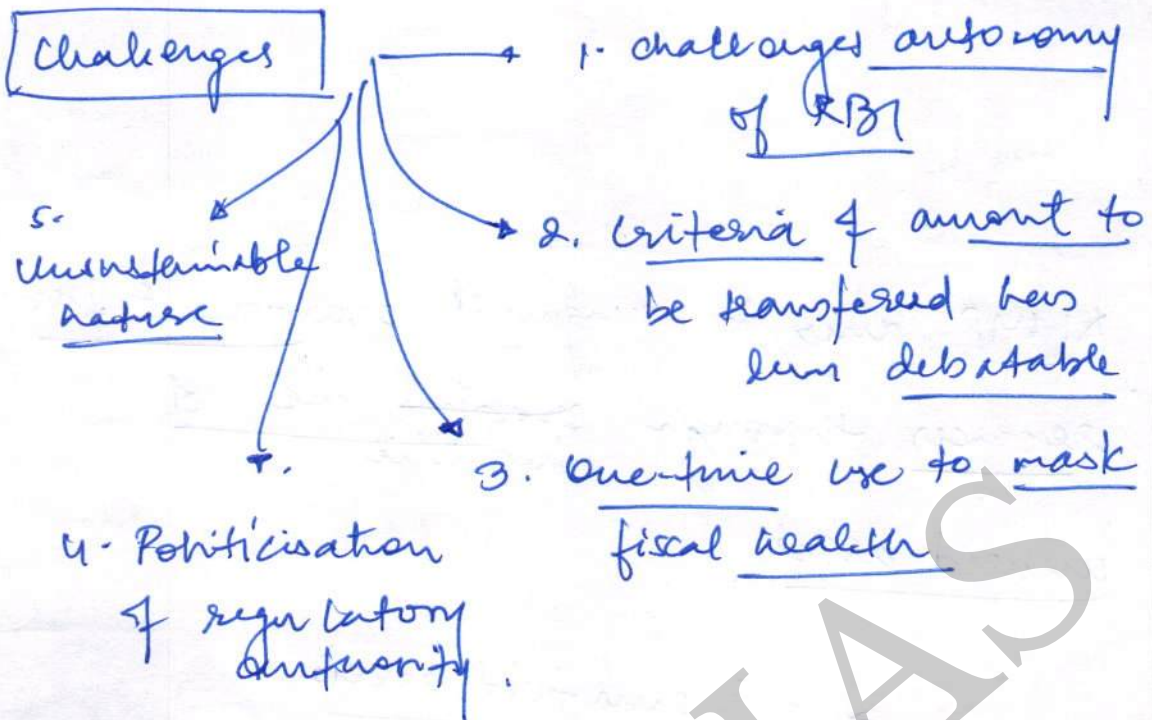 Challenges
1. challenges autonomy
of RBI
2. Criteria & amount to
be transfered has
been debatable
3. One-time use to mask
fiscal health
4. Politicisation
of regulatory
authority.
5.
Unsustainable
nature
IAS